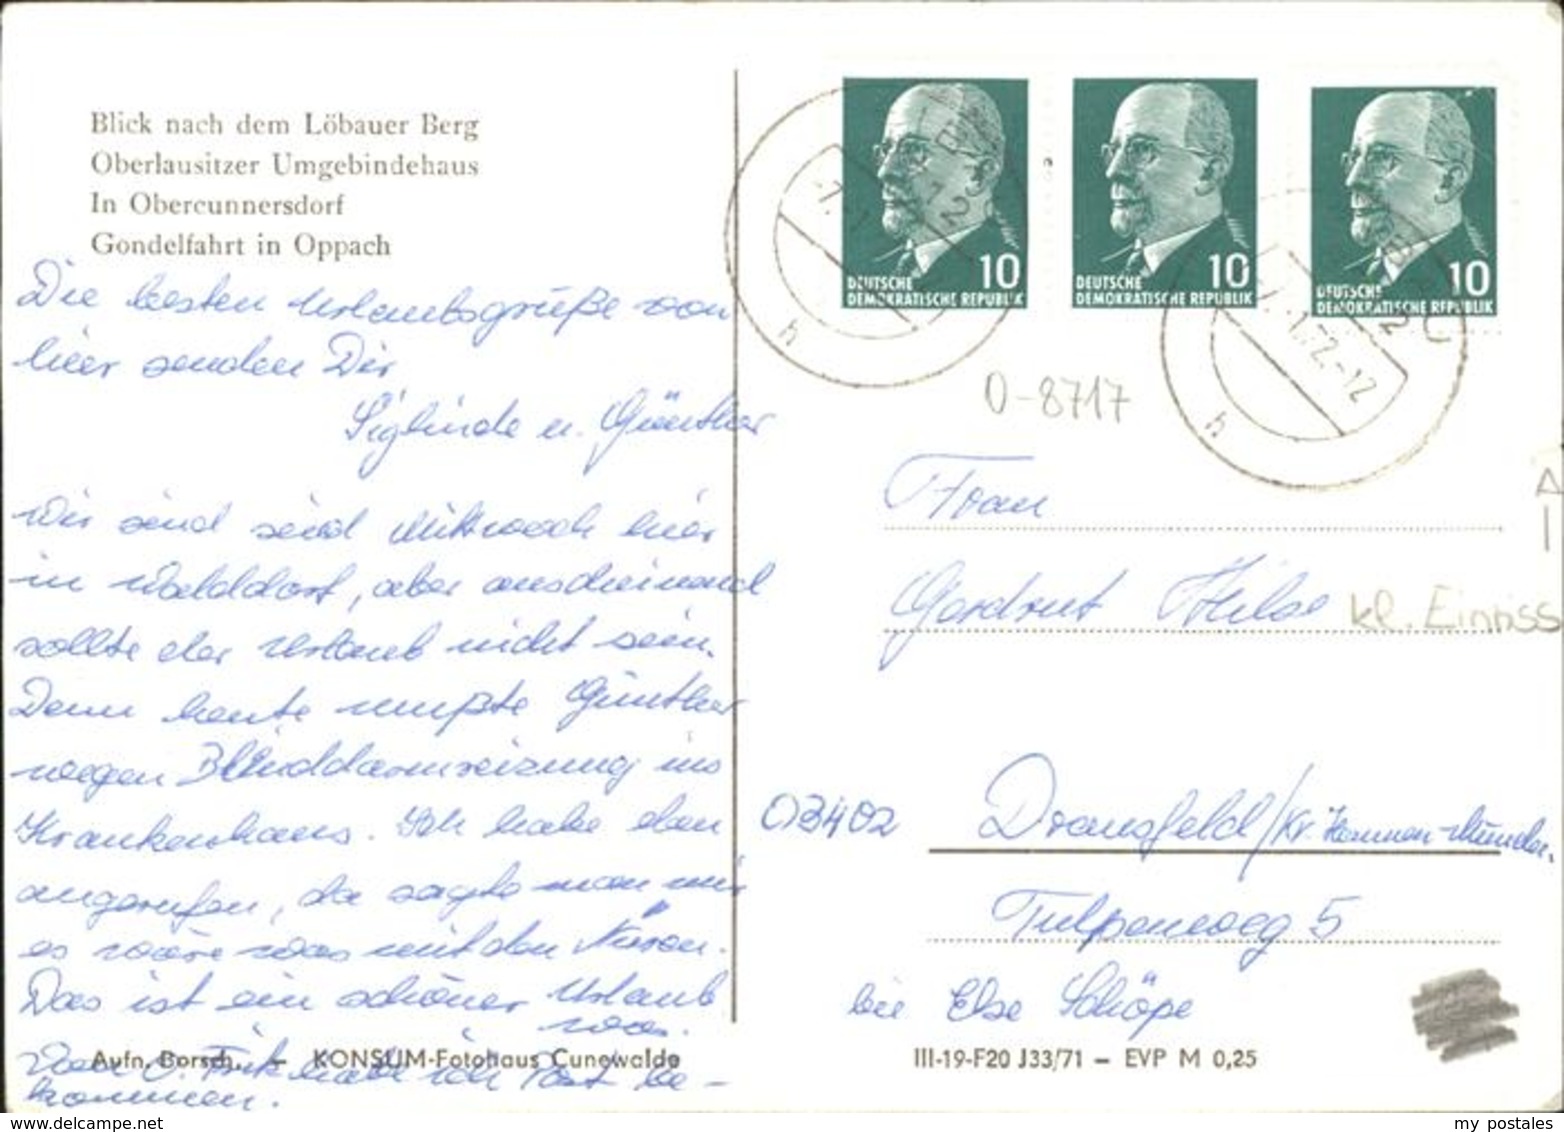 Blick nach dem Löbauer Berg
Oberlausitzer Umgebindehaus
In Obercunnersdorf
Gondelfahrt in Oppach
Die besten Urlaubsgrüße von
hier senden Dir
Siglinde u. Günther
Wir sind seid Mittwoch hier
in Walddorf, aber anscheinend
sollte der Urlaub nicht sein.
Denn heute mußte Günther
wegen Blinddarmreizung ins
Krankenhaus. Ich habe dan
angerufen, da sagte man mir
es wäre was mit den Nieren.
Das ist ein schöner Urlaub
was.
Von O. Fritz habe ich Post be-
kommen.
Aufn. Borsch, - KONSUM-Fotohaus Cunewalde
DEUTSCHE 10
DEMOKRATISCHE REPUBLIK
DEUTSCHE 10
DEMOKRATISCHE REPUBLIK
DEUTSCHE 10
DEMOKRATISCHE REPUBLIK
h
1.72.-12
h
O-8717
Frau
Gerdrut Hilse
kl. Einriss
D3402 Dransfeld/Kr. Hannen-Münden.
Tulpenweg 5
bei Else Schöpe
III-19-F20 J33/71 – EVP M 0,25
my postales
www.delcampe.net